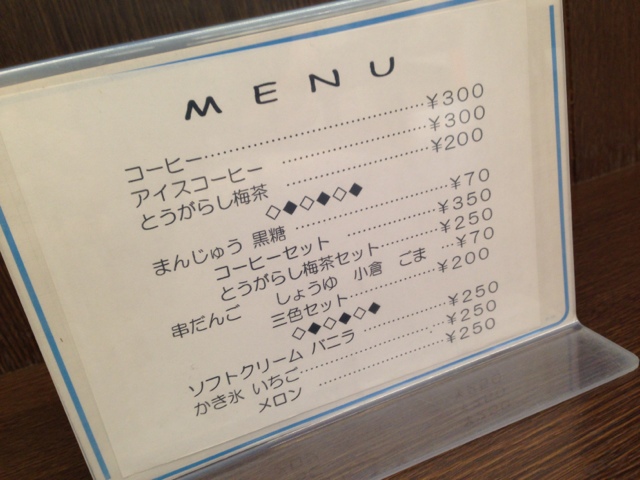 MENU
コーヒー……………………………¥300
アイスコーヒー ……………………¥300
とうがらし梅茶 ……………………¥200
◇◆◇◆◇◆
まんじゅう 黒糖 ……………………¥70
コーヒーセット ……………¥350
とうがらし梅茶セット………¥250
串だんご しょうゆ 小倉 ごま …¥70
三色セット……………¥200
◇◆◇◆◇◆
ソフトクリーム バニラ ……………¥250
かき氷 いちご………………………¥250
メロン ………………………¥250